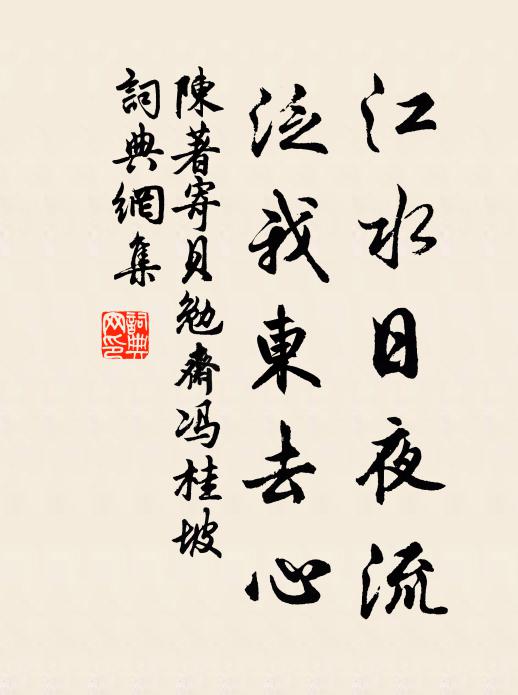 江水日夜流
泛我東去心
陳著寄貝勉齋冯桂坡
詞典網集
詞典網印